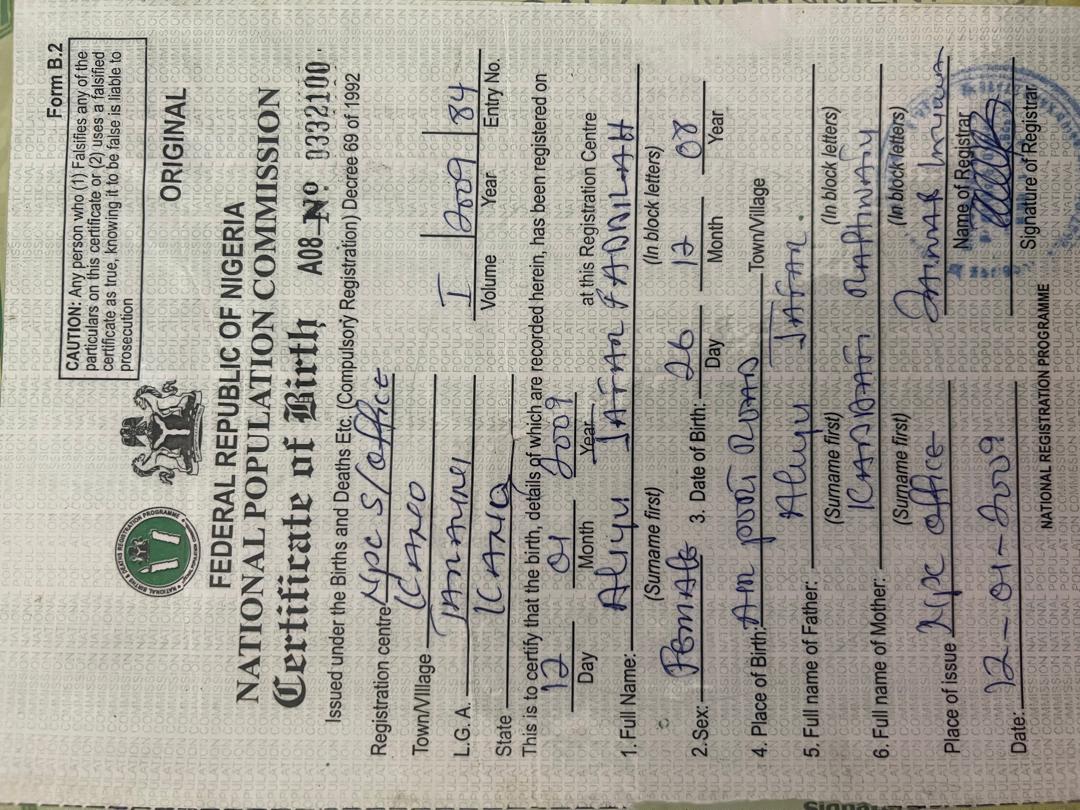 Form B.2
CAUTION: Any person who (1) Falsifies any of the
particulars on this certificate or (2) uses a falsified
certificate as true, knowing it to be false is liable to
prosecution
ORIGINAL
FEDERAL REPUBLIC OF NIGERIA
NATIONAL POPULATION COMMISSION
Certificate of Birth A08 Nº 0332100
Issued under the Births and Deaths Etc. (Compulsory Registration) Decree 69 of 1992
Registration centre Npc S/office
Town/Village KANO
L.G. A. TARAUNI I 2009 84
Volume Year Entry No.
State KANO
This is to certify that the birth, details of which are recorded herein, has been registered on
12 01 2009 at this Registration Centre
Day Month Year
1. Full Name: Aliyu JAFAR FADDILAH
(Surname first) (In block letters)
2.Sex: FEMALE 3. Date of Birth: 26 12 08
Day Month Year
4. Place of Birth: AIR PORT ROAD Town/Village
5. Full name of Father: Aliyu JAFAR
(Surname first) (In block letters)
6. Full name of Mother:
(Surname first) (In block letters)
Place of issue Npc office
Name of Registrar
Date: 12-01-2009
Signature of Registrar
NATIONAL REGISTRATION PROGRAMME